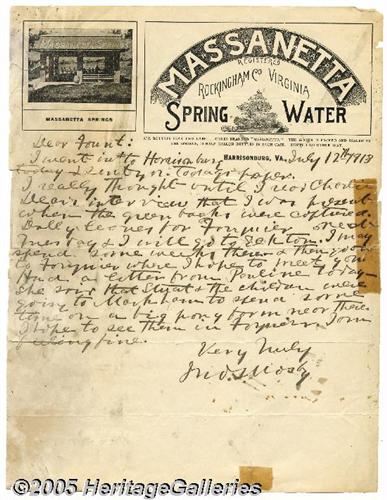 MASSANETTA
REGISTERED
ROCKINGHAM CO. VIRGINIA
SPRING WATER
MASSANETTA SPRINGS
HARRISONBURG, VA., July 12th 1913
Dear Fount:
I went into Harrisonburg
today & in today's paper.
I really thought until I read Charlie
Dear's interview that I was present
when the green backs were captured.
Dolly leaves for Fauquier next
Tuesday & I will go to Elkton. I may
spend some weeks there & then go
to Fauquier where I hope to meet you
Had a letter from Pauline today
she says that Stuart & the children were
going to Markham to spend some
time on a big pony farm near there.
I hope to see them in Fauquier. I am
feeling fine.
Very truly
Jno. S. Mosby
©2005 HeritageGalleries